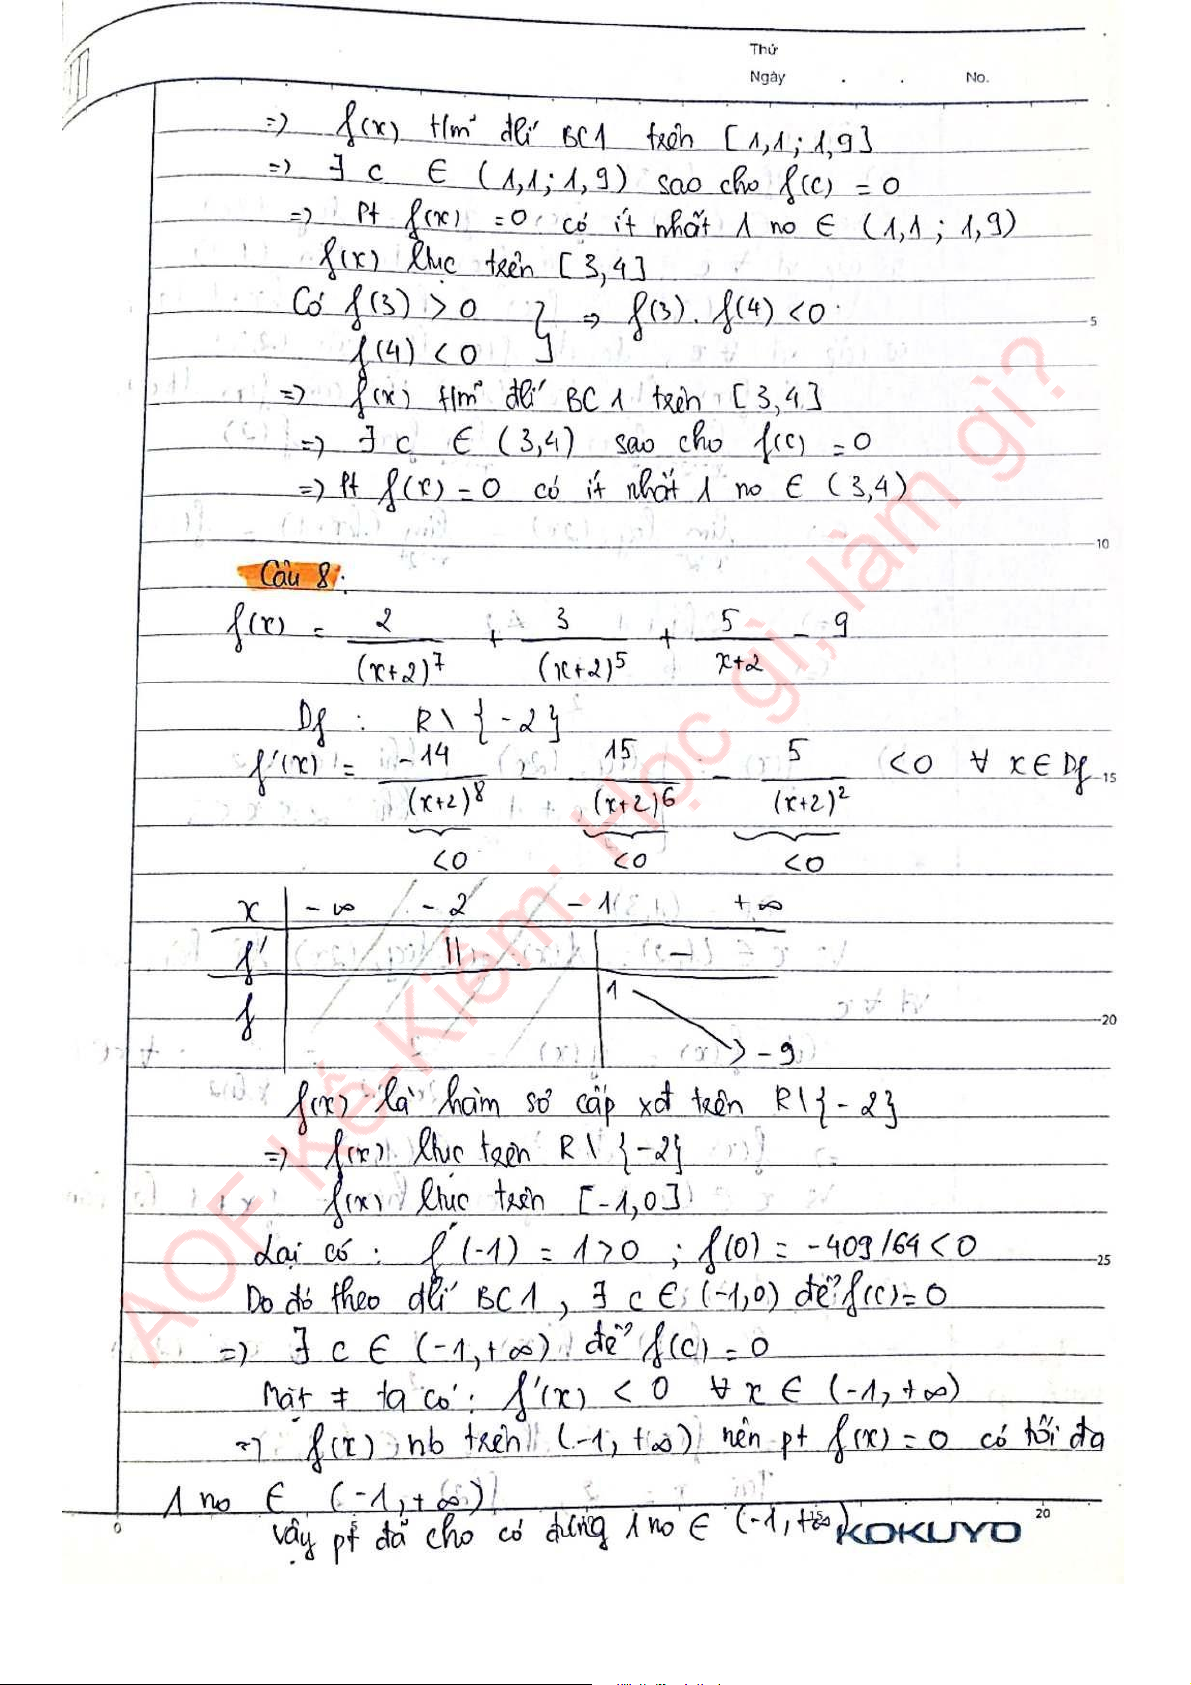 Thứ
Ngày . . No.
=) f(x) t/m đlí BC1 trên [1,1; 1,9]
=) ∃ c ∈ (1,1; 1,9) sao cho f(c) = 0
=) Pt f(x) = 0 có ít nhất 1 no ∈ (1,1; 1,9)
f(x) ltục trên [3,4]
Có f(3) > 0 } => f(3). f(4) < 0
f(4) < 0
5
=) f(x) t/m đlí BC 1 trên [3,4]
=) ∃ c ∈ (3,4) sao cho f(c) = 0
=) Pt f(x) = 0 có ít nhất 1 no ∈ (3,4)
10
Câu 8:
f(x) = 2/(x+2)^7 + 3/(x+2)^5 + 5/x+2 - 9
Df : R\{-2}
f'(x) = -14/(x+2)^8 - 15/(x+2)^6 - 5/(x+2)^2 < 0 ∀ x ∈ Df
15
<0 <0 <0
x | -∞ -2 -1 +∞
f' | || | -
f | | 1 -9
20
f(x) là hàm sơ cấp xđ trên R\{-2}
=) f(x) ltục trên R\{-2}
f(x) ltục trên [-1,0]
Lại có : f(-1) = 1 > 0 ; f(0) = -409/64 < 0
25
Do đó theo đlí BC1, ∃ c ∈ (-1,0) để f(c) = 0
=) ∃ c ∈ (-1,+∞) để f(c) = 0
Mặt ≠ ta có : f'(x) < 0 ∀ x ∈ (-1,+∞)
=) f(x) nb trên (-1, +∞) nên pt f(x) = 0 có tối đa
1 no ∈ (-1,+∞)
Vậy pt đã cho có đúng 1 no ∈ (-1,+∞)
0 5 15 20
KOKUYO
AOF Kế-Kiểm: Học gì, làm gì?